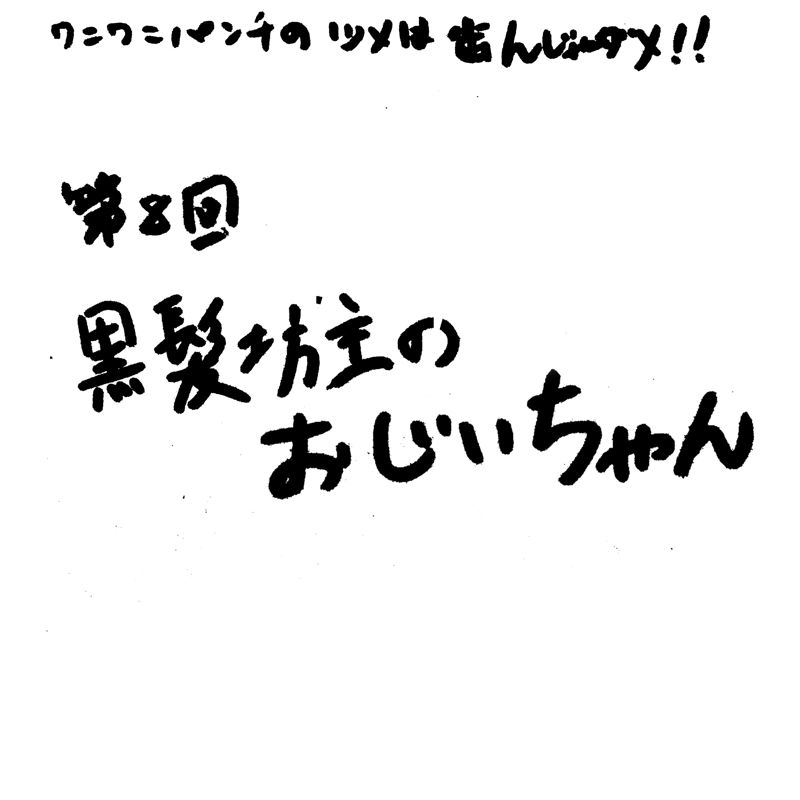 ワニワニパンチのツメは歯んじゃダメ!!
第8回
黒髪坊主の
おじいちゃん